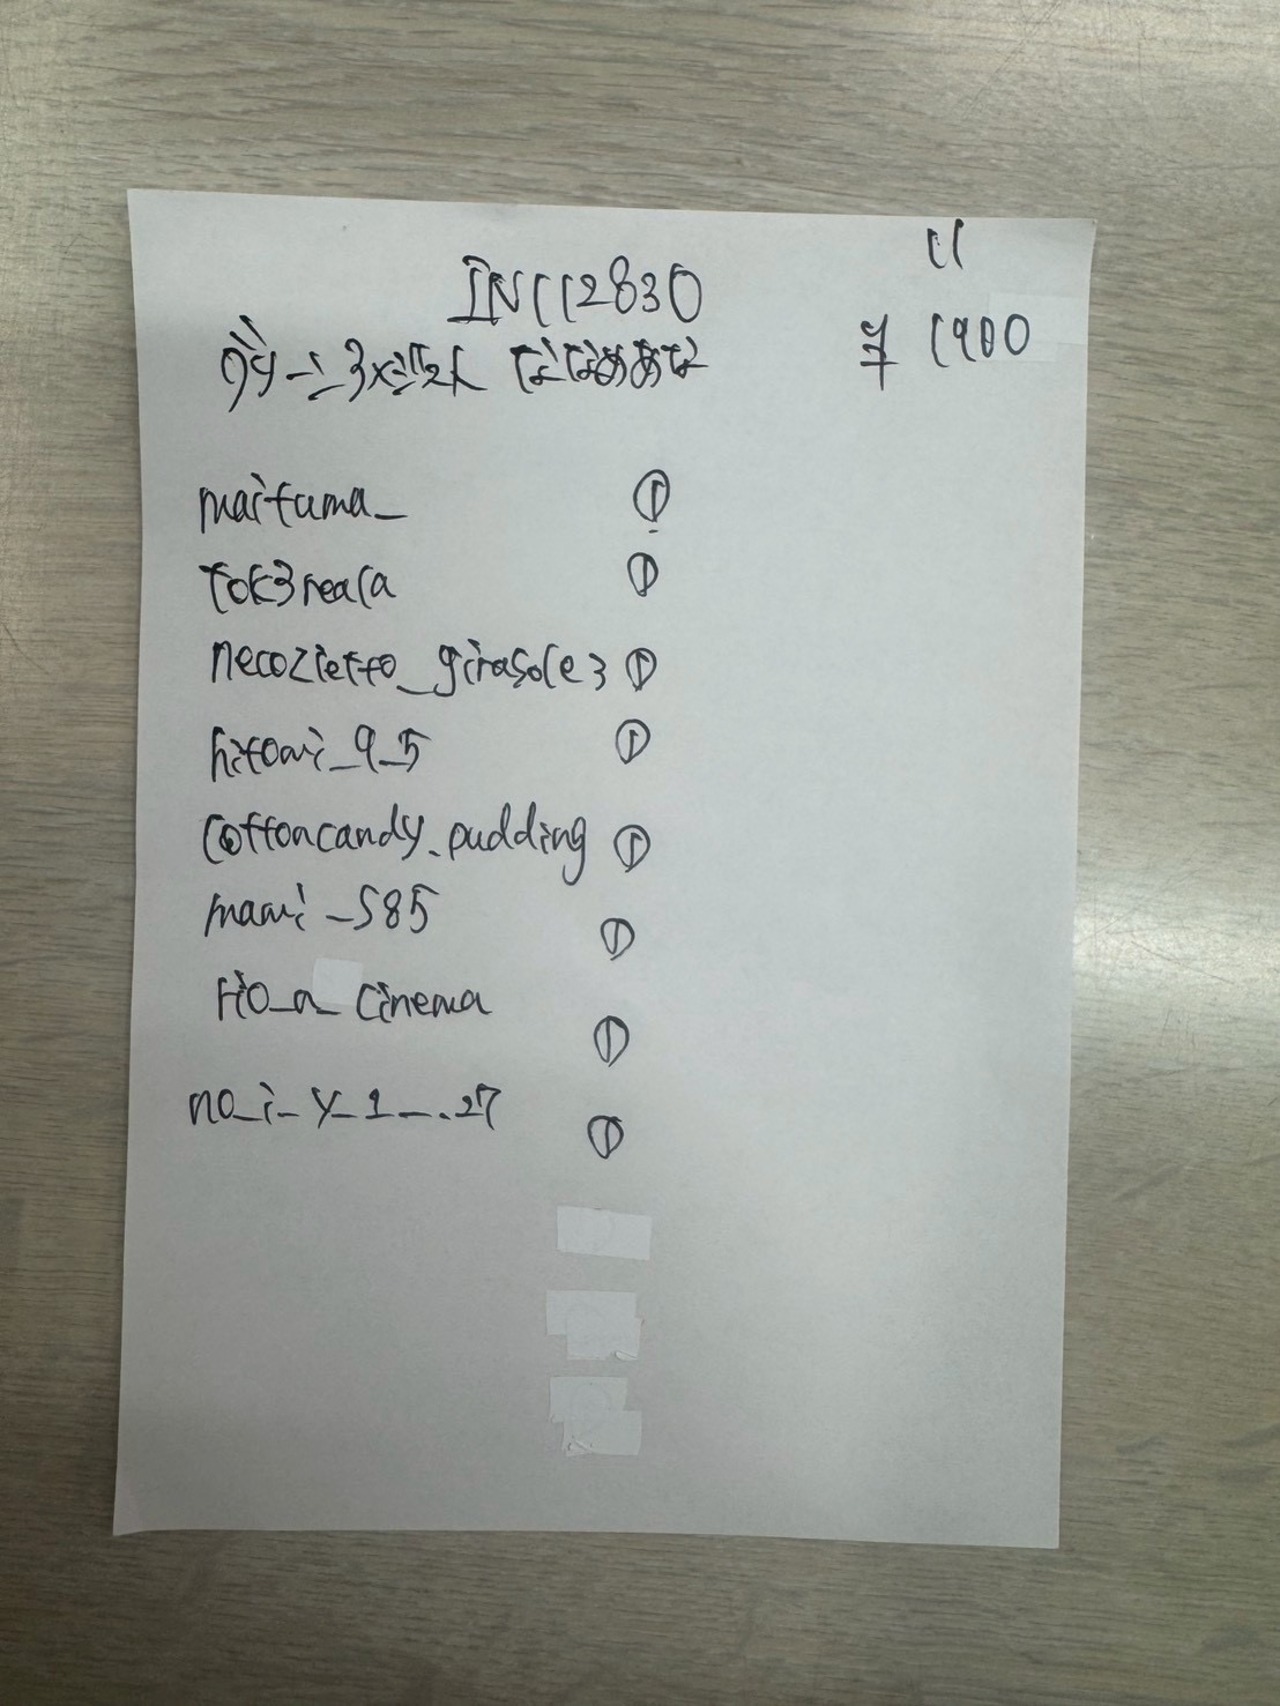 11
IN112830
¥ 1900
maituma_
tok3neala
necozietto_girasole3 ①
hitomi_9_5 ①
cottoncandy_pudding ①
mami_585 ①
rio_a_cinema ①
no_i_y_1__.27 ①